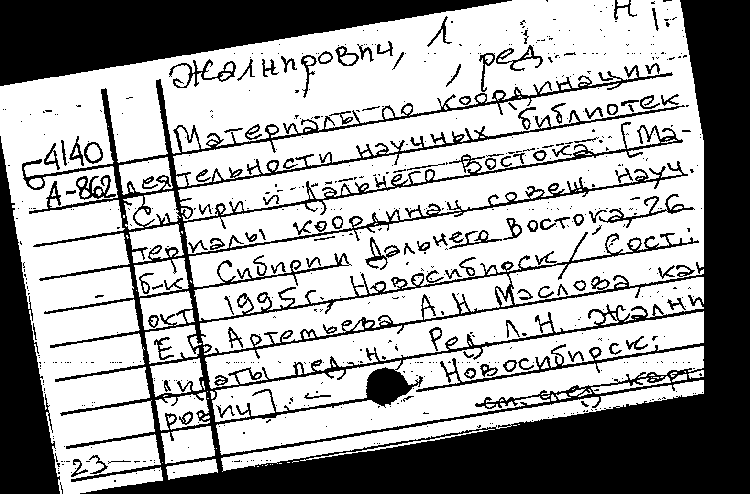 Жалнирович, Л. Н.
, ред.
Материалы по координации
Б4140
А-862
деятельности научных библиотек
Сибири и Дальнего Востока: [Ма-
териалы координац. совещ. науч.
б-к Сибири и Дальнего Востока, 26
окт. 1995 г., Новосибирск / Сост.:
Е. Б. Артемьева, А. Н. Маслова, кан
дидаты пед. н.; Ред. Л. Н. Жални
рович]. — Новосибирск:
см. след. карт.
23